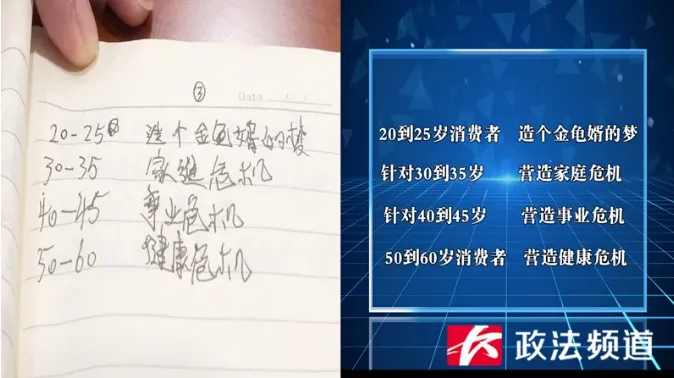 ③
Date / /
20-25岁 造个金龟婿的梦
30-35 家庭危机
40-45 事业危机
50-60 健康危机
20到25岁消费者 造个金龟婿的梦
针对30到35岁 营造家庭危机
针对40到45岁 营造事业危机
50到60岁消费者 营造健康危机
政法频道